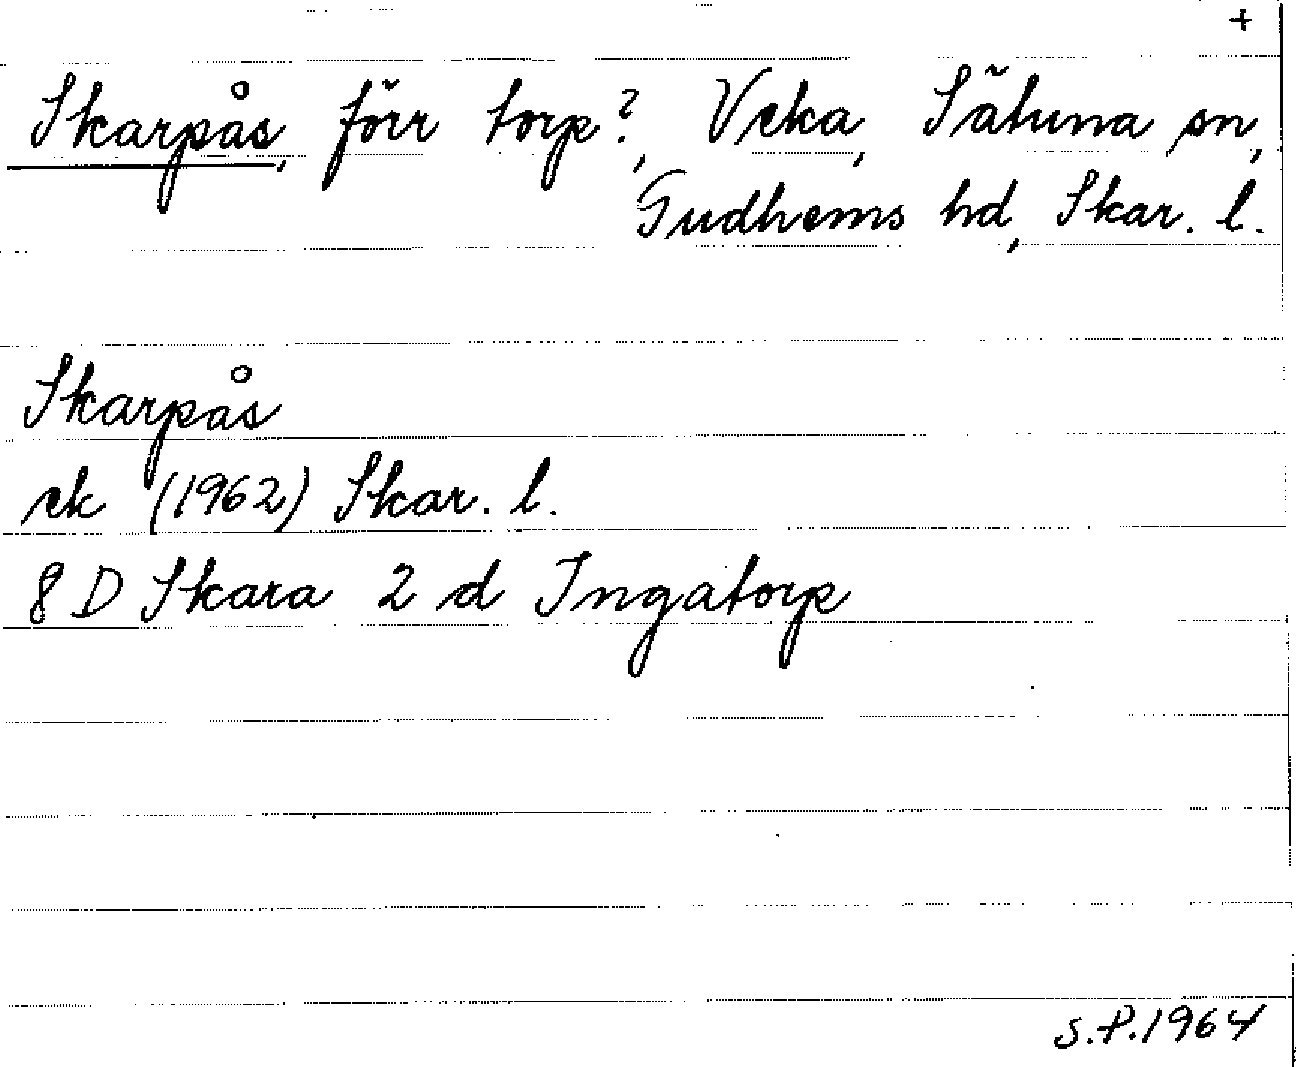 +
Skarpås, förr torp?, Veka, Sätuna sn,
Gudhems hd, Skar. l.
Skarpås
ek (1962) Skar. l.
8 D Skara 2 d Ingatorp
S.P. 1964